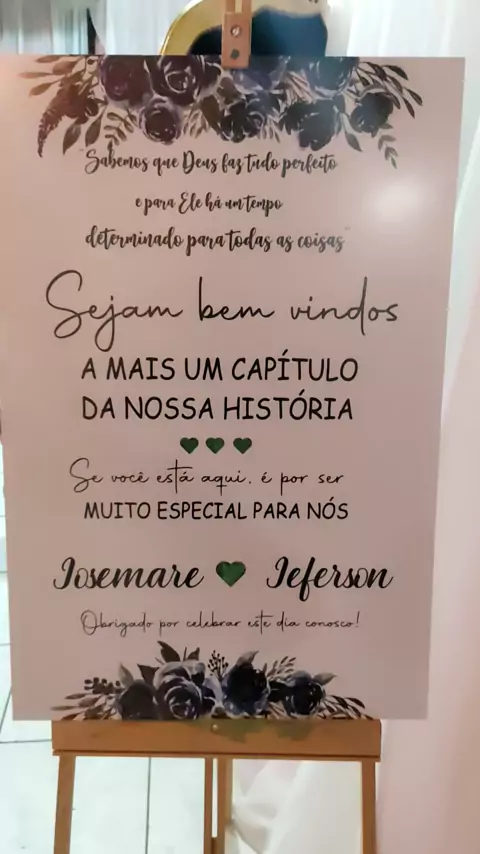 "Sabemos que Deus faz tudo perfeito
e para Ele há um tempo
determinado para todas as coisas"
Sejam bem vindos
A MAIS UM CAPÍTULO
DA NOSSA HISTÓRIA
Se você está aqui, é por ser
MUITO ESPECIAL PARA NÓS
Josemare Jeferson
Obrigado por celebrar este dia conosco!